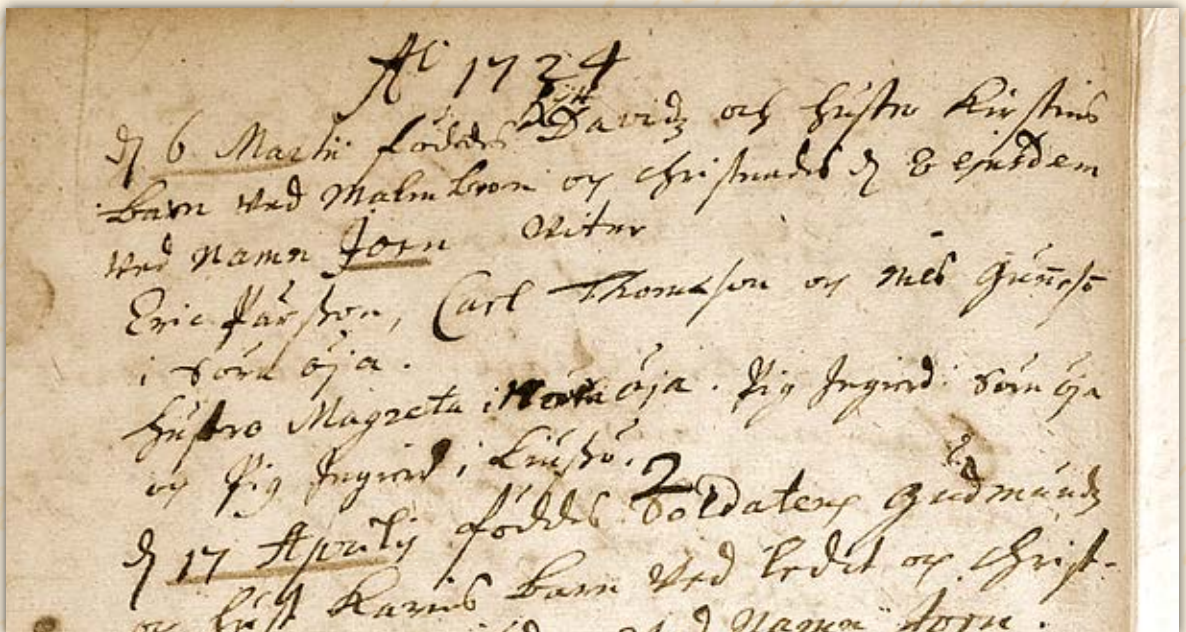 Aº 1724
d 6 Martii föddes Davidz och hustro Kirstins
barn wed Malmbron och christnades d 8 ejusdem
wed namn Jorn Witnr
Eric Pärsson, Carl Thomasson och Nils
i Sörn öja.
hustro Magreta i Norra öja. Pig Ingierd i Sörn öja
och Pig Ingierd i
2
d 17 Aprilij föddes Soldatens Gudmundz
och hust Karins barn wed ledit och christ-
namn Jorn.